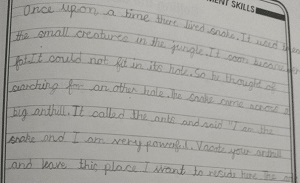 MENT SKILLS
Once upon a time there lived snake. It used
the small creatures in the jungle. It soon became
fat it could not fit in its hole. So he thought of
searching for an other hole. The snake came across a
big anthill. It called the ants and said "I am the
snake and I am very powerful. Vacate your anthill
and leave this place I want to reside here the